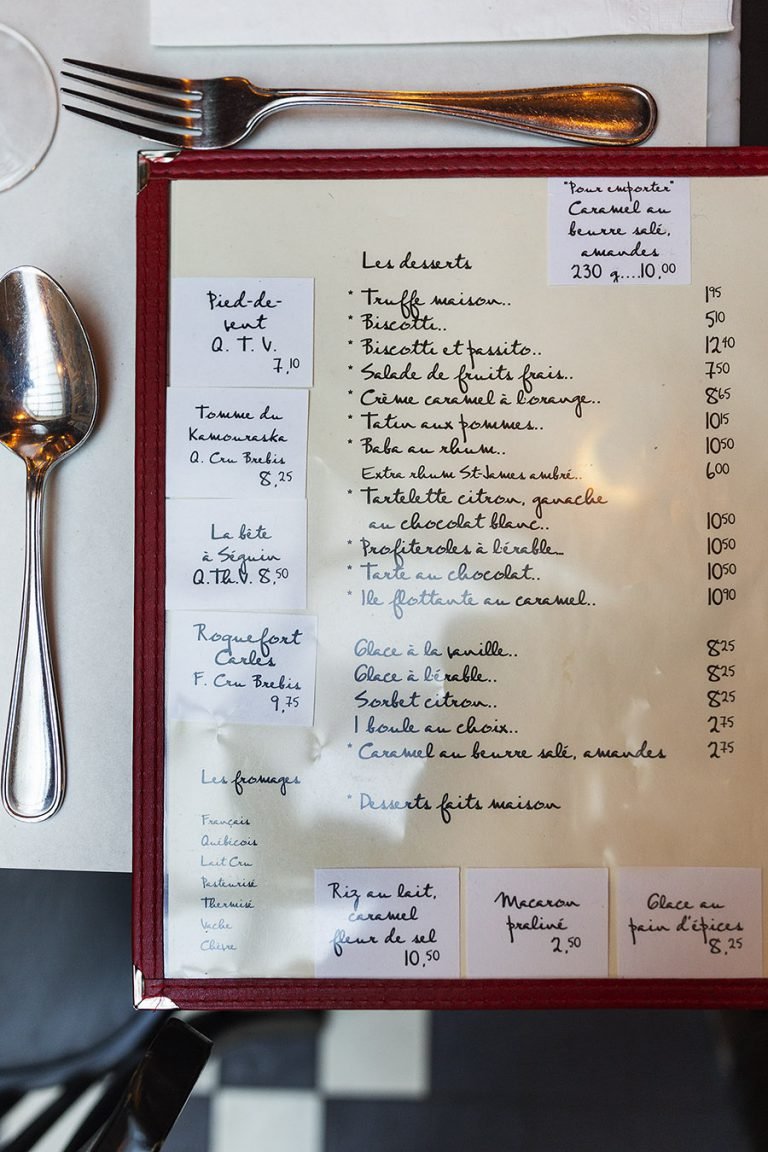 "Pour emporter"
Caramel au
beurre salé,
amandes
230 g....10,00
Les desserts
* Truffe maison.. 1 95
* Biscotti.. 5 10
* Biscotti et passito.. 12 40
* Salade de fruits frais.. 7 50
* Crème caramel à l'orange.. 8 65
* Tatin aux pommes.. 10 15
* Baba au rhum.. 10 50
Extra rhum St-James ambré.. 6 00
* Tartelette citron, ganache
au chocolat blanc.. 10 50
* Profiteroles à l'érable... 10 50
* Tarte au chocolat.. 10 50
* Ile flottante au caramel.. 10 90
Glace à la vanille.. 8 25
Glace à l'érable.. 8 25
Sorbet citron.. 8 25
1 boule au choix.. 2 75
* Caramel au beurre salé, amandes 2 75
* Desserts faits maison
Pied-de-
vent
Q. T. V.
7,10
Tomme du
Kamouraska
Q. Cru Brebis
8,25
La bête
à Séguin
Q.Th.V. 8,50
Roquefort
Carles
F. Cru Brebis
9,75
Les fromages
Français
Québécois
Lait Cru
Pasteurisé
Thermisé
Vache
Chèvre
Riz au lait,
caramel
fleur de sel
10,50
Macaron
praliné
2,50
Glace au
pain d'épices
8,25